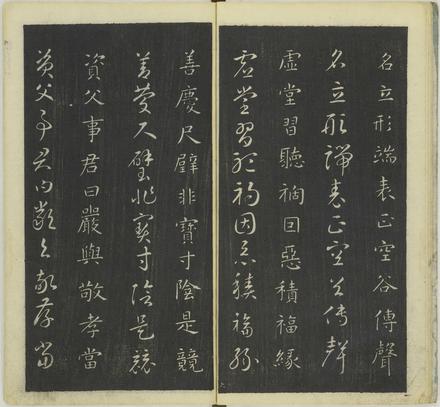 名立形端表正空谷傳聲
名立形端表正空谷傳聲
虛堂習聽禍因惡積福緣
虛堂習聽禍因惡積福緣
善慶尺璧非寶寸陰是競
善慶尺璧非寶寸陰是競
資父事君曰嚴與敬孝當
資父事君曰嚴與敬孝當